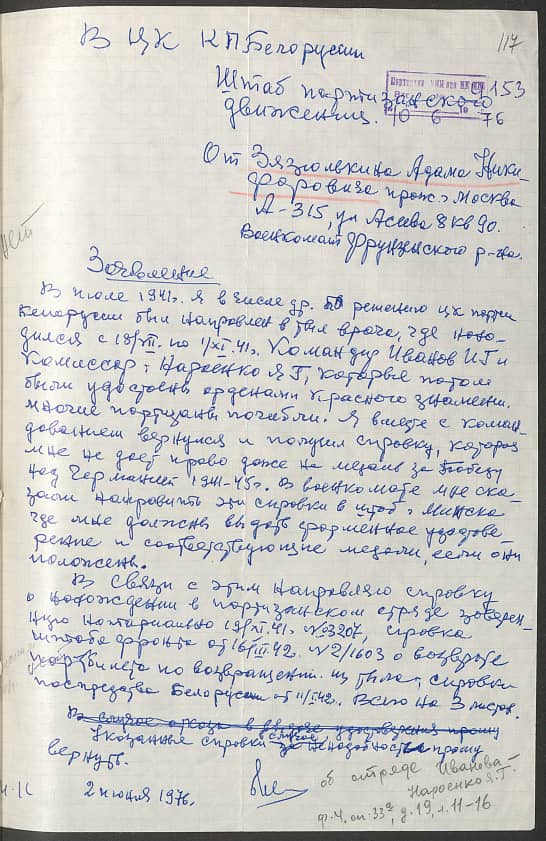 117
В ЦК КПБелоруссии
Штаб партизанского
153
движения.
10 6 76
От Зязюлькина Адама Ники-
форовича прож. г Москва
А-315, ул Асеева 8 кв 90.
Военкомат Фрунзенского р-на.
нет
Заявление
В июле 1941г. я в числе др. по решению цк партии
Белоруссии был направлен в тыл врага, где нахо-
дился с 18/VII. по 1/XI.41г. Командир Иванов И Г и
Комиссар: Нароенко Я Г, которые потом
были удостоены орденами Красного знамени.
многие партизаны погибли. Я вместе с коман-
дованием вернулся и получил справку, которая
мне не дает право даже на медаль за Победу
над Германией 1941-45г. В военкомате мне ска-
зали направить эти справки в штаб г Минска
где мне должны выдать форменное удостове-
рение и соответствующие медали, если они
положены.
В связи с этим направляю справку
о нахождении в партизанском отряде заверен-
ную нотариально 19/XI.41. №3207, справка
штаба фронта от 16/III.42. №2/1603 о возврате
партбилета по возвращении из тыла, справки
постпредства Белоруссии от 11/42. Всего на 3 листах.
В случае отказа в выдаче удостоверения прошу
Указанные справки случае за ненадобностью прошу
вернуть.
2 июня 1976.
об отряде Иванова-
Нароенко Я.Г.
ф.4, оп.33а, д.19, л.11-16